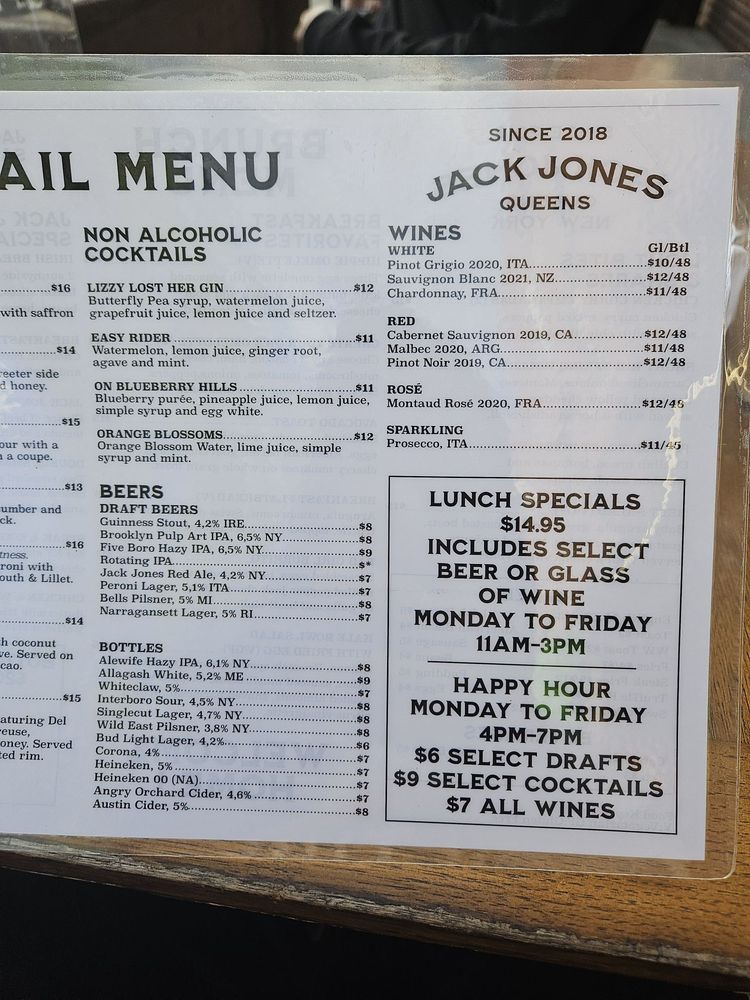 AIL MENU
SINCE 2018
JACK JONES
QUEENS
$16
with saffron
$14
reeter side
d honey.
$15
our with a
a coupe.
$13
umber and
ck.
$16
tness.
roni with
outh & Lillet.
$14
h coconut
ve. Served on
cao.
$15
aturing Del
reuse,
oney. Served
ted rim.
NON ALCOHOLIC
COCKTAILS
LIZZY LOST HER GIN $12
Butterfly Pea syrup, watermelon juice,
grapefruit juice, lemon juice and seltzer.
EASY RIDER $11
Watermelon, lemon juice, ginger root,
agave and mint.
ON BLUEBERRY HILLS $11
Blueberry purée, pineapple juice, lemon juice,
simple syrup and egg white.
ORANGE BLOSSOMS $12
Orange Blossom Water, lime juice, simple
syrup and mint.
BEERS
DRAFT BEERS
Guinness Stout, 4,2% IRE $8
Brooklyn Pulp Art IPA, 6,5% NY $8
Five Boro Hazy IPA, 6,5% NY $9
Rotating IPA $*
Jack Jones Red Ale, 4,2% NY $7
Peroni Lager, 5,1% ITA $7
Bells Pilsner, 5% MI $8
Narragansett Lager, 5% RI $7
BOTTLES
Alewife Hazy IPA, 6,1% NY $8
Allagash White, 5,2% ME $9
Whiteclaw, 5% $7
Interboro Sour, 4,5% NY $8
Singlecut Lager, 4,7% NY $8
Wild East Pilsner, 3,8% NY $8
Bud Light Lager, 4,2% $6
Corona, 4% $7
Heineken, 5% $7
Heineken 00 (NA) $7
Angry Orchard Cider, 4,6% $7
Austin Cider, 5% $8
WINES
WHITE Gl/Btl
Pinot Grigio 2020, ITA $10/48
Sauvignon Blanc 2021, NZ $12/48
Chardonnay, FRA $11/48
RED
Cabernet Sauvignon 2019, CA $12/48
Malbec 2020, ARG $11/48
Pinot Noir 2019, CA $12/48
ROSÉ
Montaud Rosé 2020, FRA $12/48
SPARKLING
Prosecco, ITA $11/45
LUNCH SPECIALS
$14.95
INCLUDES SELECT
BEER OR GLASS
OF WINE
MONDAY TO FRIDAY
11AM-3PM
HAPPY HOUR
MONDAY TO FRIDAY
4PM-7PM
$6 SELECT DRAFTS
$9 SELECT COCKTAILS
$7 ALL WINES